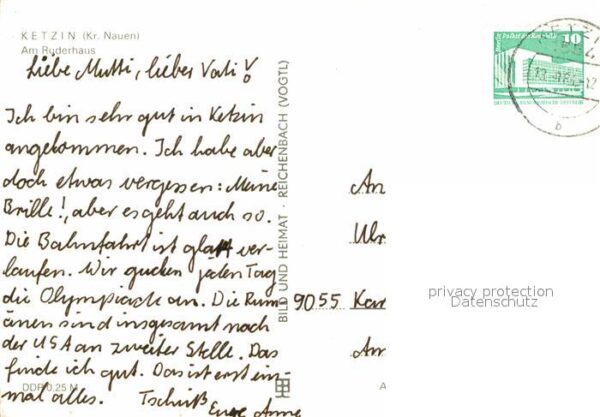 KETZIN (Kr. Nauen)
Am Ruderhaus
Liebe Mutti, lieber Vati!
Ich bin sehr gut in Ketzin
angekommen. Ich habe aber
doch etwas vergessen: Meine
Brille!, aber es geht auch so.
Die Bahnfahrt ist glatt ver-
laufen. Wir gucken jeden Tag
die Olympiade an. Die Rum
änen sind insgesamt nach
der USA an zweiter Stelle. Das
finde ich gut. Das ist erst ein-
mal alles. Tschüß
Eure Anne
DDR 0,25 M
BILD UND HEIMAT · REICHENBACH (VOGTL)
An
Ulr
9055 Kar
Am
A
10
KETZIN
b
privacy protection
Datenschutz